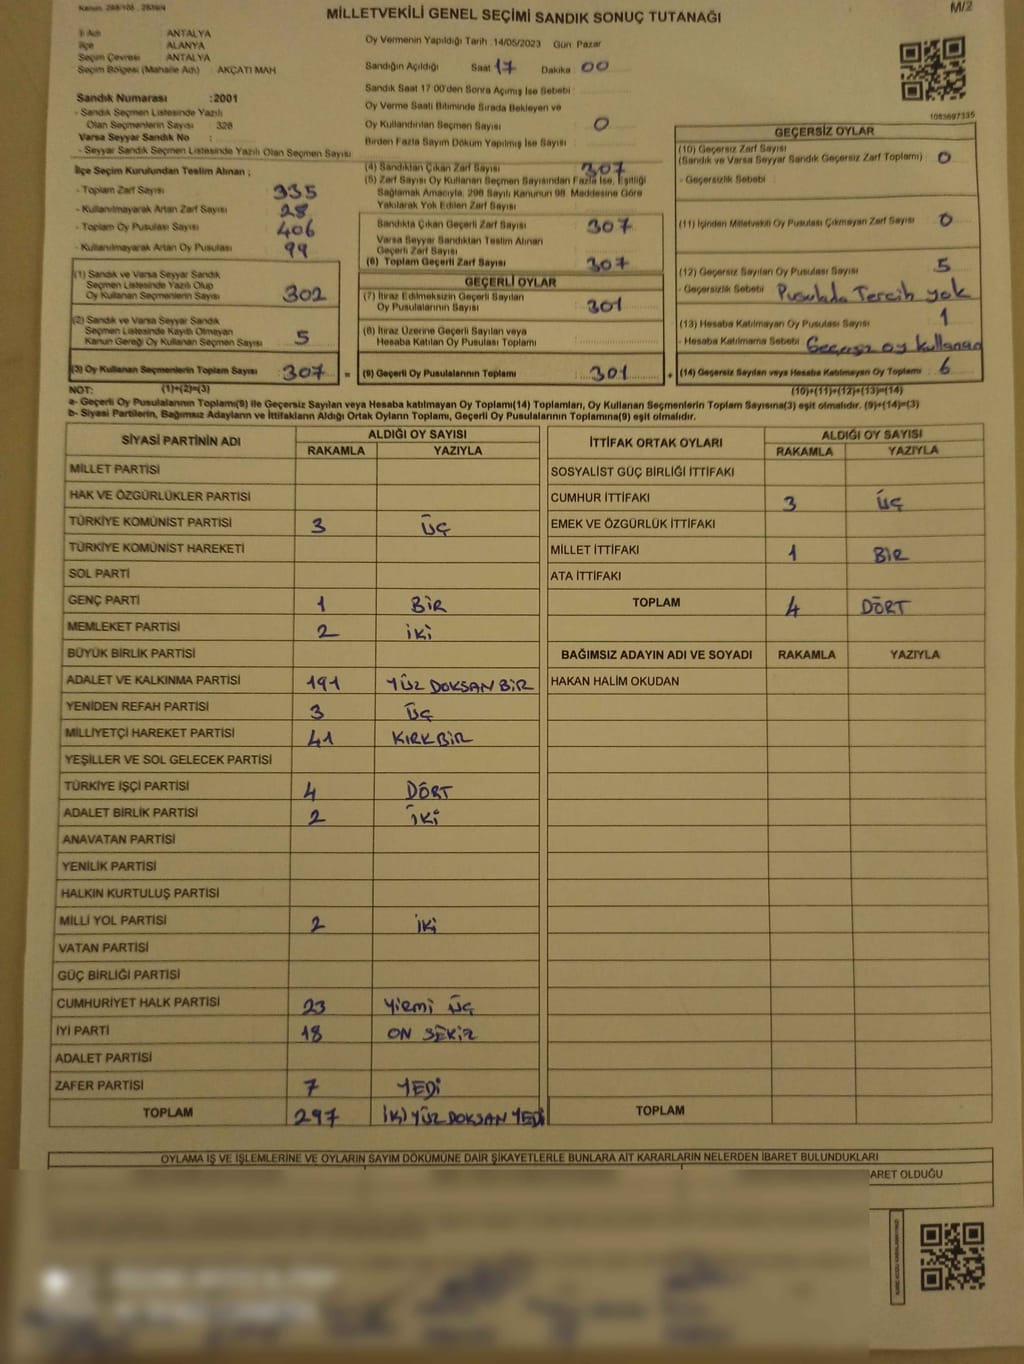 Kanun: 298/105 , 2839/4
MİLLETVEKİLİ GENEL SEÇİMİ SANDIK SONUÇ TUTANAĞI
M/2
İl Adı : ANTALYA
İlçe : ALANYA
Seçim Çevresi : ANTALYA
Seçim Bölgesi (Mahalle Adı) : AKÇATI MAH
Sandık Numarası :2001
- Sandık Seçmen Listesinde Yazılı
Olan Seçmenlerin Sayısı : 328
Varsa Seyyar Sandık No :
- Seyyar Sandık Seçmen Listesinde Yazılı Olan Seçmen Sayısı
Oy Vermenin Yapıldığı Tarih : 14/05/2023 Gün: Pazar
Sandığın Açıldığı Saat 17 Dakika 00
Sandık Saat 17:00'den Sonra Açılmış İse Sebebi :
Oy Verme Saati Bitiminde Sırada Bekleyen ve
Oy Kullandırılan Seçmen Sayısı : 0
Birden Fazla Sayım Döküm Yapılmış İse Sayısı :
1083697335
İlçe Seçim Kurulundan Teslim Alınan ;
- Toplam Zarf Sayısı : 335
- Kullanılmayarak Artan Zarf Sayısı : 28
- Toplam Oy Pusulası Sayısı : 406
- Kullanılmayarak Artan Oy Pusulası : 99
(1) Sandık ve Varsa Seyyar Sandık
Seçmen Listesinde Yazılı Olup
Oy Kullanan Seçmenlerin Sayısı : 302
(2) Sandık ve Varsa Seyyar Sandık
Seçmen Listesinde Kayıtlı Olmayan
Kanun Gereği Oy Kullanan Seçmen Sayısı : 5
(3) Oy Kullanan Seçmenlerin Toplam Sayısı : 307 =
(4) Sandıktan Çıkan Zarf Sayısı : 307
(5) Zarf Sayısı Oy Kullanan Seçmen Sayısından Fazla İse, Eşitliği
Sağlamak Amacıyla, 298 Sayılı Kanunun 98. Maddesine Göre
Yakılarak Yok Edilen Zarf Sayısı :
Sandıkta Çıkan Geçerli Zarf Sayısı : 307
Varsa Seyyar Sandıktan Teslim Alınan
Geçerli Zarf Sayısı :
(6) Toplam Geçerli Zarf Sayısı : 307
GEÇERLİ OYLAR
(7) İtiraz Edilmeksizin Geçerli Sayılan
Oy Pusulalarının Sayısı : 301
(8) İtiraz Üzerine Geçerli Sayılan veya
Hesaba Katılan Oy Pusulası Toplamı :
(9) Geçerli Oy Pusulalarının Toplamı : 301 +
GEÇERSİZ OYLAR
(10) Geçersiz Zarf Sayısı
(Sandık ve Varsa Seyyar Sandık Geçersiz Zarf Toplamı) : 0
- Geçersizlik Sebebi :
(11) İçinden Milletvekili Oy Pusulası Çıkmayan Zarf Sayısı : 0
(12) Geçersiz Sayılan Oy Pusulası Sayısı : 5
- Geçersizlik Sebebi : Pusulada Tercih yok
(13) Hesaba Katılmayan Oy Pusulası Sayısı : 1
- Hesaba Katılmama Sebebi : Geçersiz oy kullanan
(14) Geçersiz Sayılan veya Hesaba Katılmayan Oy Toplamı : 6
NOT: (1)+(2)=(3) (10)+(11)+(12)+(13)=(14)
a- Geçerli Oy Pusulalarının Toplamı(9) ile Geçersiz Sayılan veya Hesaba katılmayan Oy Toplamı(14) Toplamları, Oy Kullanan Seçmenlerin Toplam Sayısına(3) eşit olmalıdır. (9)+(14)=(3)
b- Siyasi Partilerin, Bağımsız Adayların ve İttifakların Aldığı Ortak Oyların Toplamı, Geçerli Oy Pusulalarının Toplamına(9) eşit olmalıdır.
SİYASİ PARTİNİN ADI ALDIĞI OY SAYISI
RAKAMLA YAZIYLA
MİLLET PARTİSİ
HAK VE ÖZGÜRLÜKLER PARTİSİ
TÜRKİYE KOMÜNİST PARTİSİ 3 üç
TÜRKİYE KOMÜNİST HAREKETİ
SOL PARTİ
GENÇ PARTİ 1 BİR
MEMLEKET PARTİSİ 2 iki
BÜYÜK BİRLİK PARTİSİ
ADALET VE KALKINMA PARTİSİ 191 YÜZ DOKSAN BİR
YENİDEN REFAH PARTİSİ 3 üç
MİLLİYETÇİ HAREKET PARTİSİ 41 KIRK BİR
YEŞİLLER VE SOL GELECEK PARTİSİ
TÜRKİYE İŞÇİ PARTİSİ 4 DÖRT
ADALET BİRLİK PARTİSİ 2 iki
ANAVATAN PARTİSİ
YENİLİK PARTİSİ
HALKIN KURTULUŞ PARTİSİ
MİLLİ YOL PARTİSİ 2 iki
VATAN PARTİSİ
GÜÇ BİRLİĞİ PARTİSİ
CUMHURİYET HALK PARTİSİ 23 Yirmi üç
İYİ PARTİ 18 ON SEKİZ
ADALET PARTİSİ
ZAFER PARTİSİ 7 YEDİ
TOPLAM 297 İKİ YÜZ DOKSAN YEDİ
İTTİFAK ORTAK OYLARI ALDIĞI OY SAYISI
RAKAMLA YAZIYLA
SOSYALİST GÜÇ BİRLİĞİ İTTİFAKI
CUMHUR İTTİFAKI 3 üç
EMEK VE ÖZGÜRLÜK İTTİFAKI
MİLLET İTTİFAKI 1 BİR
ATA İTTİFAKI
TOPLAM 4 DÖRT
BAĞIMSIZ ADAYIN ADI VE SOYADI RAKAMLA YAZIYLA
HAKAN HALİM OKUDAN
TOPLAM
OYLAMA İŞ VE İŞLEMLERİNE VE OYLARIN SAYIM DÖKÜMÜNE DAİR ŞİKAYETLERLE BUNLARA AİT KARARLARIN NELERDEN İBARET BULUNDUKLARI
ARET OLDUĞU